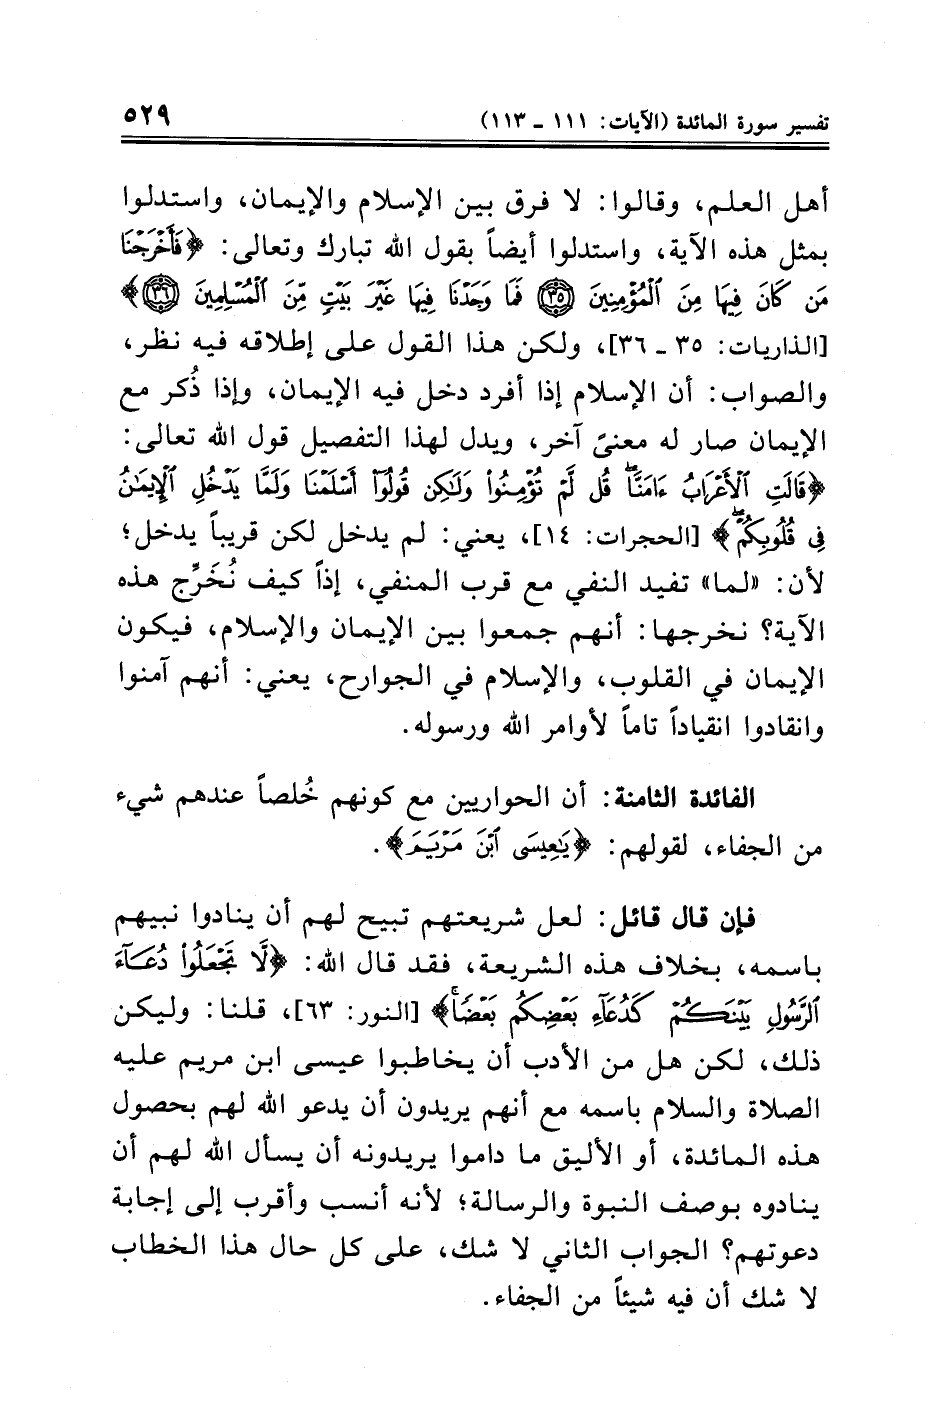 تفسير سورة المائدة (الآيات: ١١١ - ١١٣) ٥٢٩
أهل العلم، وقالوا: لا فرق بين الإسلام والإيمان، واستدلوا
بمثل هذه الآية، واستدلوا أيضاً بقول الله تبارك وتعالى: ﴿فَأَخْرَجْنَا
مَن كَانَ فِيهَا مِنَ ٱلْمُؤْمِنِينَ ٣٥ فَمَا وَجَدْنَا فِيهَا غَيْرَ بَيْتٍ مِّنَ ٱلْمُسْلِمِينَ ٣٦﴾
[الذاريات: ٣٥ - ٣٦]، ولكن هذا القول على إطلاقه فيه نظر،
والصواب: أن الإسلام إذا أفرد دخل فيه الإيمان، وإذا ذُكر مع
الإيمان صار له معنىً آخر، ويدل لهذا التفصيل قول الله تعالى:
﴿قَالَتِ ٱلْأَعْرَابُ ءَامَنَّا ۖ قُل لَّمْ تُؤْمِنُوا۟ وَلَـٰكِن قُولُوٓا۟ أَسْلَمْنَا وَلَمَّا يَدْخُلِ ٱلْإِيمَـٰنُ
فِى قُلُوبِكُمْ ۖ﴾ [الحجرات: ١٤]، يعني: لم يدخل لكن قريباً يدخل؛
لأن: «لما» تفيد النفي مع قرب المنفي، إذاً كيف نُخَرِّج هذه
الآية؟ نخرجها: أنهم جمعوا بين الإيمان والإسلام، فيكون
الإيمان في القلوب، والإسلام في الجوارح، يعني: أنهم آمنوا
وانقادوا انقياداً تاماً لأوامر الله ورسوله.
الفائدة الثامنة: أن الحواريين مع كونهم خُلصاً عندهم شيء
من الجفاء، لقولهم: ﴿يَـٰعِيسَى ٱبْنَ مَرْيَمَ﴾.
فإن قال قائل: لعل شريعتهم تبيح لهم أن ينادوا نبيهم
باسمه، بخلاف هذه الشريعة، فقد قال الله: ﴿لَّا تَجْعَلُوا۟ دُعَآءَ
ٱلرَّسُولِ بَيْنَكُمْ كَدُعَآءِ بَعْضِكُم بَعْضًا ۚ﴾ [النور: ٦٣]، قلنا: وليكن
ذلك، لكن هل من الأدب أن يخاطبوا عيسى ابن مريم عليه
الصلاة والسلام باسمه مع أنهم يريدون أن يدعو الله لهم بحصول
هذه المائدة، أو الأليق ما داموا يريدونه أن يسأل الله لهم أن
ينادوه بوصف النبوة والرسالة؛ لأنه أنسب وأقرب إلى إجابة
دعوتهم؟ الجواب الثاني لا شك، على كل حال هذا الخطاب
لا شك أن فيه شيئاً من الجفاء.